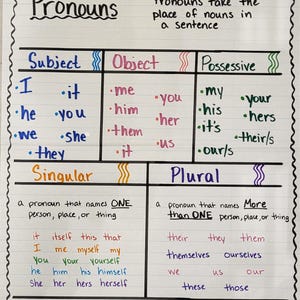 Pronouns
Pronouns take the
place of nouns in
a sentence
Subject
Object
Possessive
•I •it
•he •you
•we •she
•they
•me •you
•him •her
•them •us
•it
•my •your
•his •hers
•it's •their/s
•our/s
Singular
Plural
a pronoun that names ONE
person, place, or thing
it itself this that
I me myself my
you your yourself
he him his himself
she her hers herself
a pronoun that names More
than ONE person, place, or thing
their they them
themselves ourselves
we us our
these those